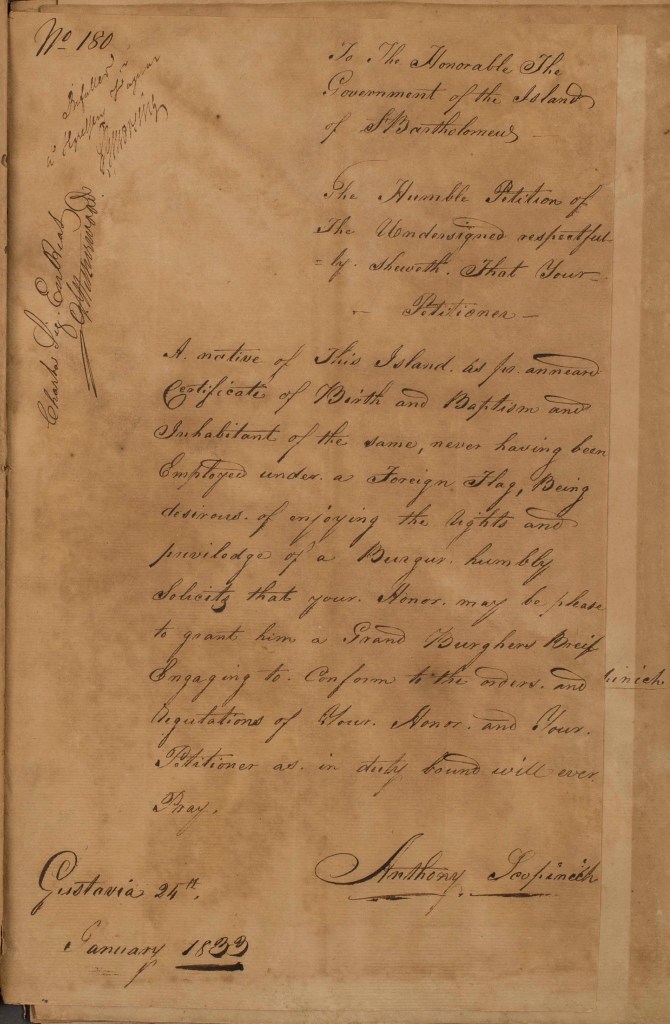 No 180
Bifalles
To The Honorable The
Government of the Island
of St Bartholomeus
The Humble Petition of
The Undersigned respectful-
=ly sheweth. That Your
Petitioner
A native of This Island. as pr. anneard
Certificate of Birth and Baptism and
Inhabitant of the same, never having been
Employed under a Foreign Flag, Being
desirous of enjoying the rights and
priviledge of a Burgur. humbly
Solicits that your. Honor. may be please
to grant him a Grand Burghers Breif
Engaging to. Conform to the orders. and
regutations of Your. Honor. and Your.
Petitioner as. in duty bound will ever.
Pray.
Anthony
Gustavia 24th.
January 1833